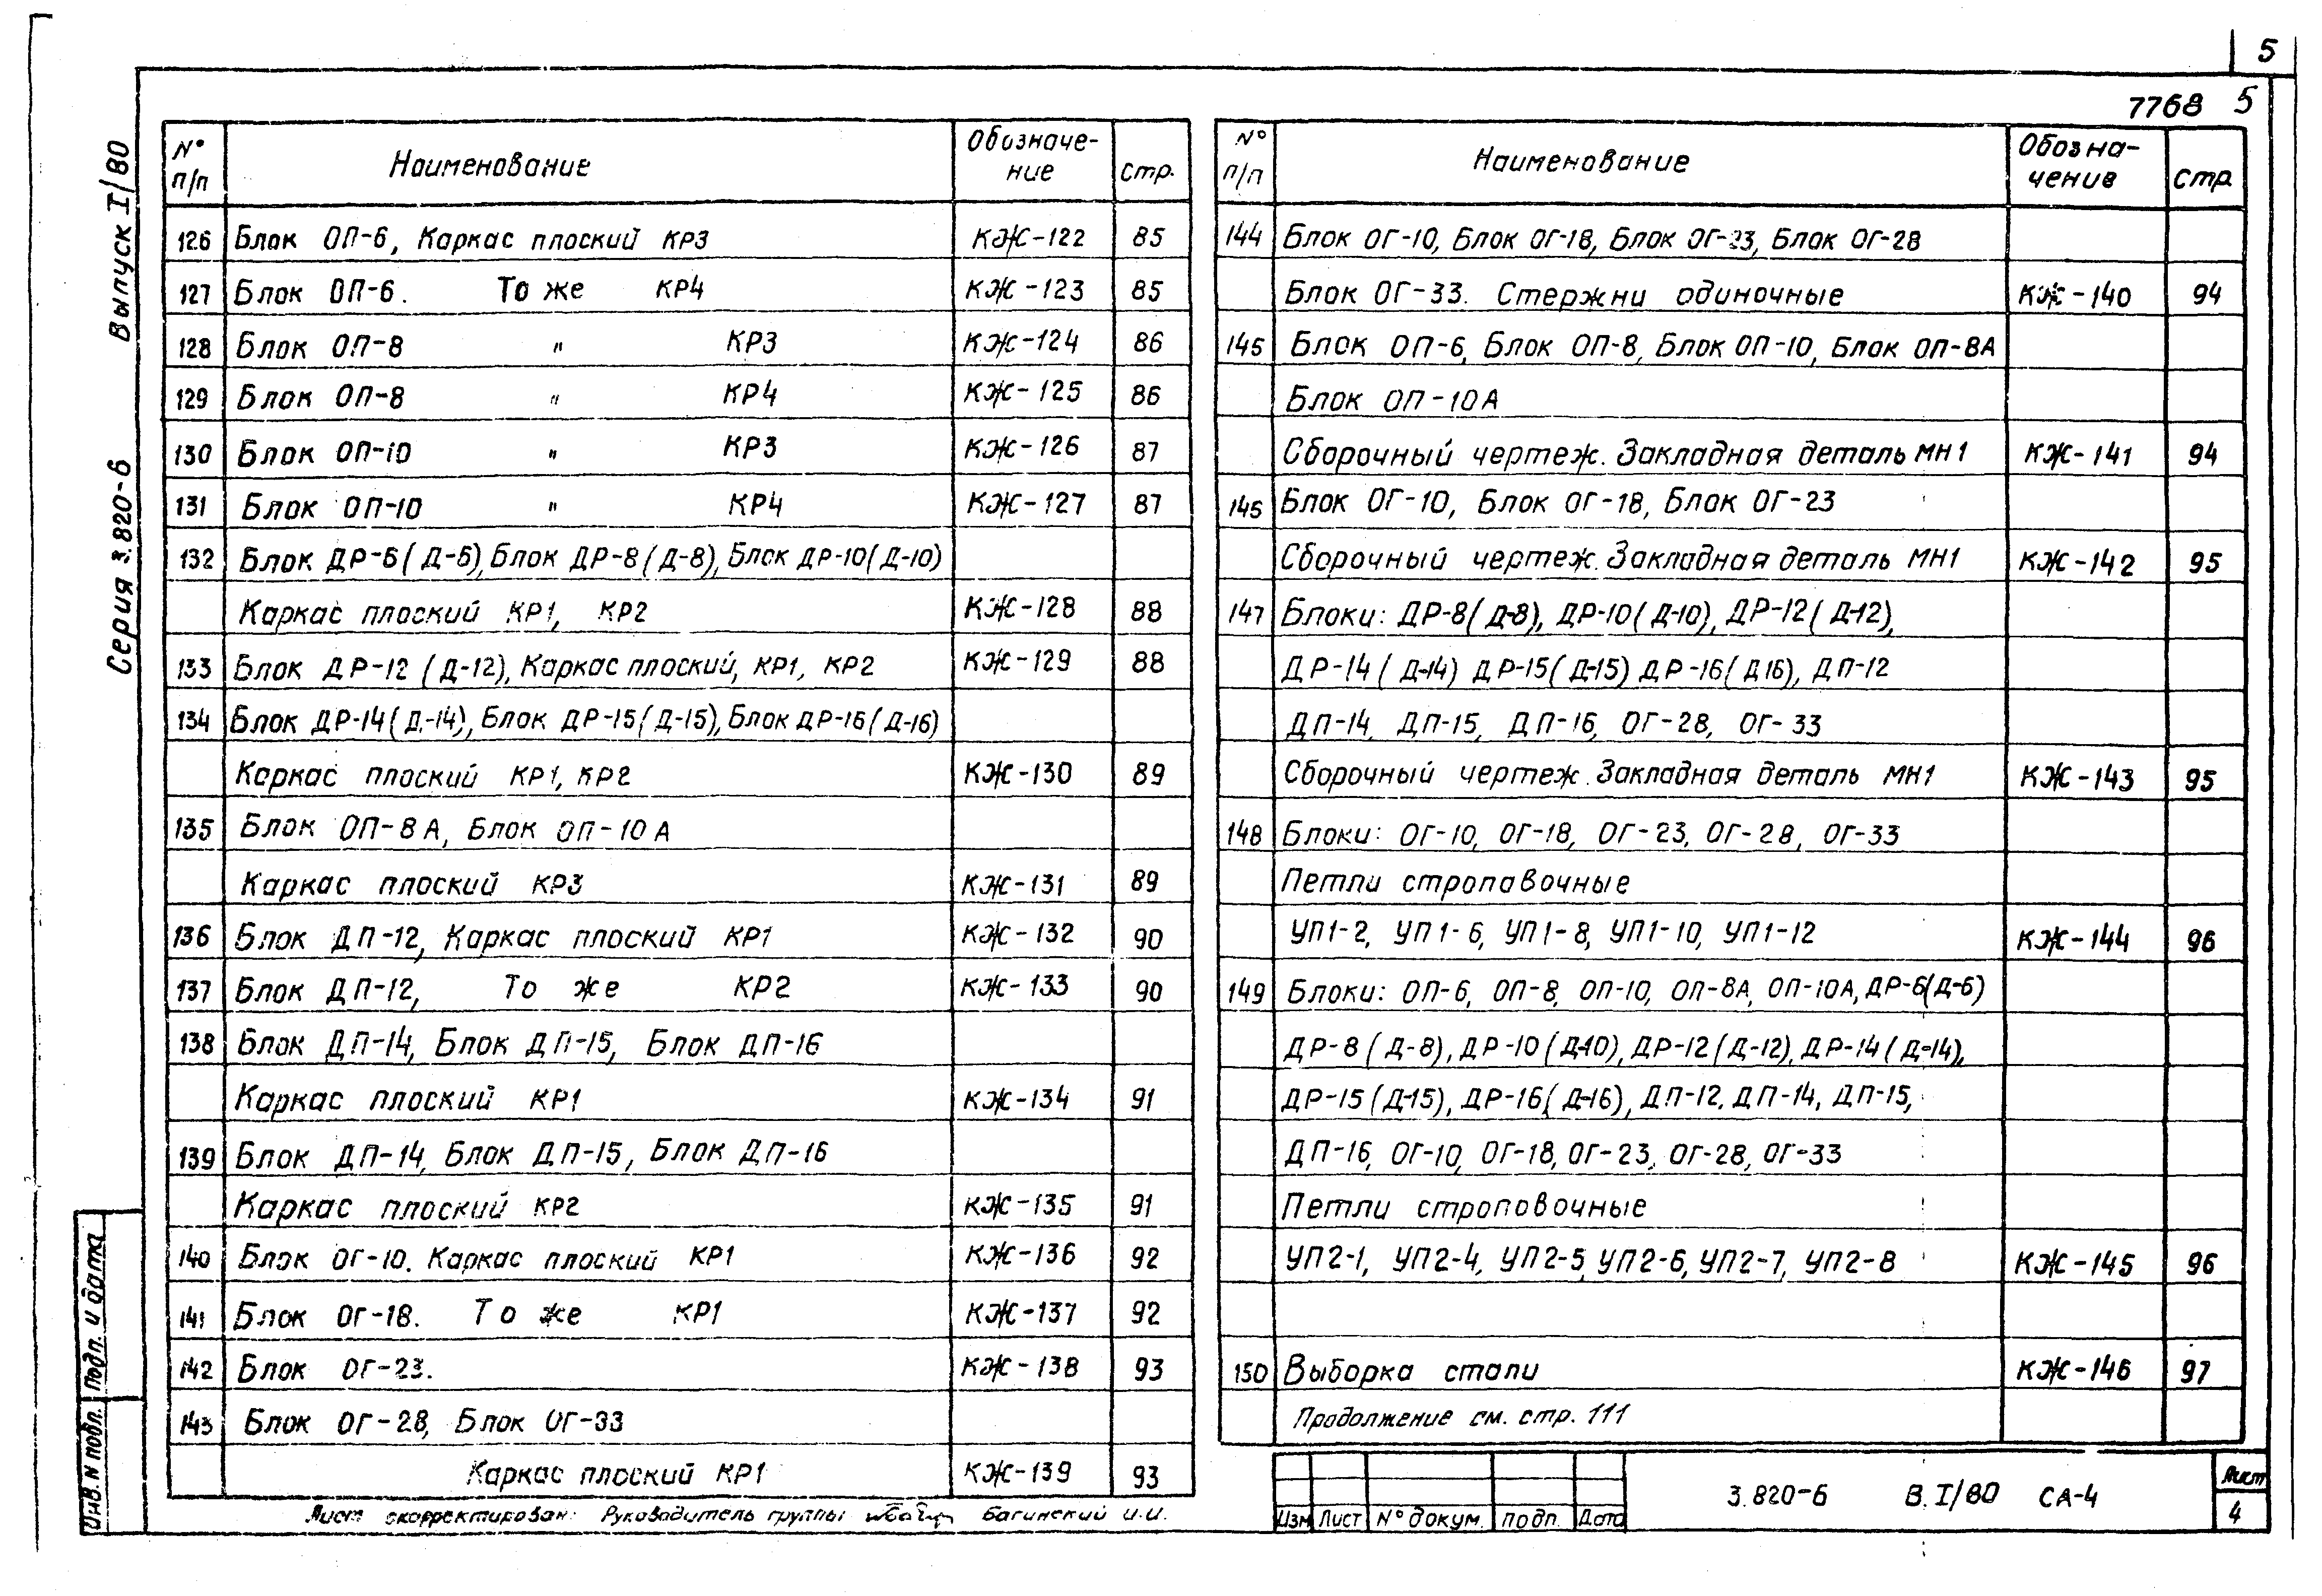 5
7768 5
Серия 3.820-6 Выпуск I/80
№ п/п Наименование Обозначе-ние стр.
126 Блок ОП-6, Каркас плоский КР3 КЖ-122 85
127 Блок ОП-6. То же КР4 КЖ-123 85
128 Блок ОП-8 " КР3 КЖ-124 86
129 Блок ОП-8 " КР4 КЖ-125 86
130 Блок ОП-10 " КР3 КЖ-126 87
131 Блок ОП-10 " КР4 КЖ-127 87
132 Блок ДР-6(Д-6), Блок ДР-8(Д-8), Блок ДР-10(Д-10)
Каркас плоский КР1, КР2 КЖ-128 88
133 Блок ДР-12 (Д-12), Каркас плоский, КР1, КР2 КЖ-129 88
134 Блок ДР-14(Д-14), Блок ДР-15(Д-15), Блок ДР-16(Д-16)
Каркас плоский КР1, КР2 КЖ-130 89
135 Блок ОП-8А, Блок ОП-10А
Каркас плоский КР3 КЖ-131 89
136 Блок ДП-12, Каркас плоский КР1 КЖ-132 90
137 Блок ДП-12, То же КР2 КЖ-133 90
138 Блок ДП-14, Блок ДП-15, Блок ДП-16
Каркас плоский КР1 КЖ-134 91
139 Блок ДП-14, Блок ДП-15, Блок ДП-16
Каркас плоский КР2 КЖ-135 91
140 Блок ОГ-10. Каркас плоский КР1 КЖ-136 92
141 Блок ОГ-18. То же КР1 КЖ-137 92
142 Блок ОГ-23. КЖ-138 93
143 Блок ОГ-28, Блок ОГ-33
Каркас плоский КР1 КЖ-139 93
№ п/п Наименование Обозна-чение стр
144 Блок ОГ-10, Блок ОГ-18, Блок ОГ-23, Блок ОГ-28
Блок ОГ-33. Стержни одиночные КЖ-140 94
145 Блок ОП-6, Блок ОП-8, Блок ОП-10, Блок ОП-8А
Блок ОП-10А
Сборочный чертеж. Закладная деталь МН1 КЖ-141 94
146 Блок ОГ-10, Блок ОГ-18, Блок ОГ-23
Сборочный чертеж. Закладная деталь МН1 КЖ-142 95
147 Блоки: ДР-8(Д-8), ДР-10(Д-10), ДР-12(Д-12),
ДР-14(Д-14) ДР-15(Д-15) ДР-16(Д16), ДП-12
ДП-14, ДП-15, ДП-16, ОГ-28, ОГ-33
Сборочный чертеж. Закладная деталь МН1 КЖ-143 95
148 Блоки: ОГ-10, ОГ-18, ОГ-23, ОГ-28, ОГ-33
Петли строповочные
УП1-2, УП1-6, УП1-8, УП1-10, УП1-12 КЖ-144 96
149 Блоки: ОП-6, ОП-8, ОП-10, ОП-8А, ОП-10А, ДР-6(Д-6)
ДР-8(Д-8), ДР-10(Д-10), ДР-12(Д-12), ДР-14(Д-14),
ДР-15(Д-15), ДР-16(Д-16), ДП-12, ДП-14, ДП-15,
ДП-16, ОГ-10, ОГ-18, ОГ-23, ОГ-28, ОГ-33
Петли строповочные
УП2-1, УП2-4, УП2-5, УП2-6, УП2-7, УП2-8 КЖ-145 96
150 Выборка стали КЖ-146 97
Продолжение см. стр. 111
Инв. N подл. Подп. и дата
Лист скорректирован: Руководитель группы Багинский И.И.
Изм Лист № докум. подп. Дата
3.820-6 В. I/80 СА-4
Лист
4